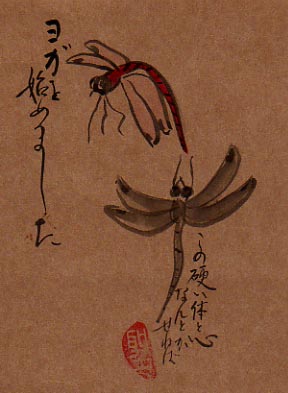 ヨガを
始めました
この硬い体と心
なんとか
せねば